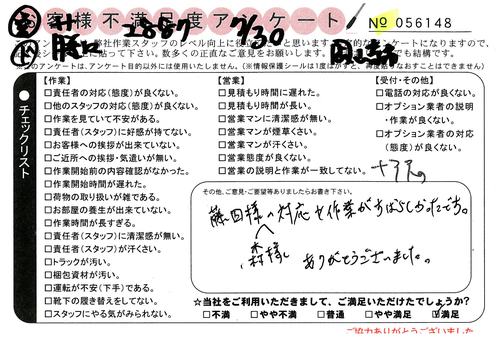 お客様不満足度アンケート！
№ 056148
1887 7/30
弊社作業スタッフのレベル向上に役立
思います
なアンケートになりますので、
貼って下さい。数多くの正直なご意見をお願いします。
でも結構です。
※このアンケートは、アンケート目的以外には使用いたしません。(※情報保護シールは1度はがすと、再度貼りなおすことはできません)
チェックリスト
【作業】
□責任者の対応(態度)が良くない。
□他のスタッフの対応(態度)が良くない。
□作業を見ていて不安がある。
□責任者(スタッフ)に好感が持てない。
□お客様への挨拶が出来ていない。
□ご近所への挨拶・気遣いが無い。
□作業開始前の内容確認がなかった。
□作業開始時間が遅れた。
□荷物の取り扱いが雑である。
□お部屋の養生が出来ていない。
□作業時間が長すぎる。
□責任者(スタッフ)に清潔感が無い。
□責任者(スタッフ)が汗くさい。
□トラックが汚い。
□梱包資材が汚い。
□運転が不安(下手)である。
□靴下の履き替えをしてない。
□スタッフにやる気がみられない。
【営業】
□見積もり時間に遅れた。
□見積もり時間が長い。
□営業マンに清潔感が無い。
□営業マンが煙草くさい。
□営業マンが汗くさい。
□営業態度が良くない。
□営業の説明と作業が一致してない。
【受付・その他】
□電話の対応が良くない。
□オプション業者の説明
・作業が良くない。
□オプション業者の対応
(態度)が良くない。
その他、ご意見・ご要望等ありましたらお書き下さい。
藤田様の対応や作業がすばらしかったです。
森様
ありがとうございました。
☆当社をご利用いただきまして、ご満足いただけたでしょうか?
□不満 □やや不満 □普通 □やや満足 ☑満足
ご協力ありがとうございました